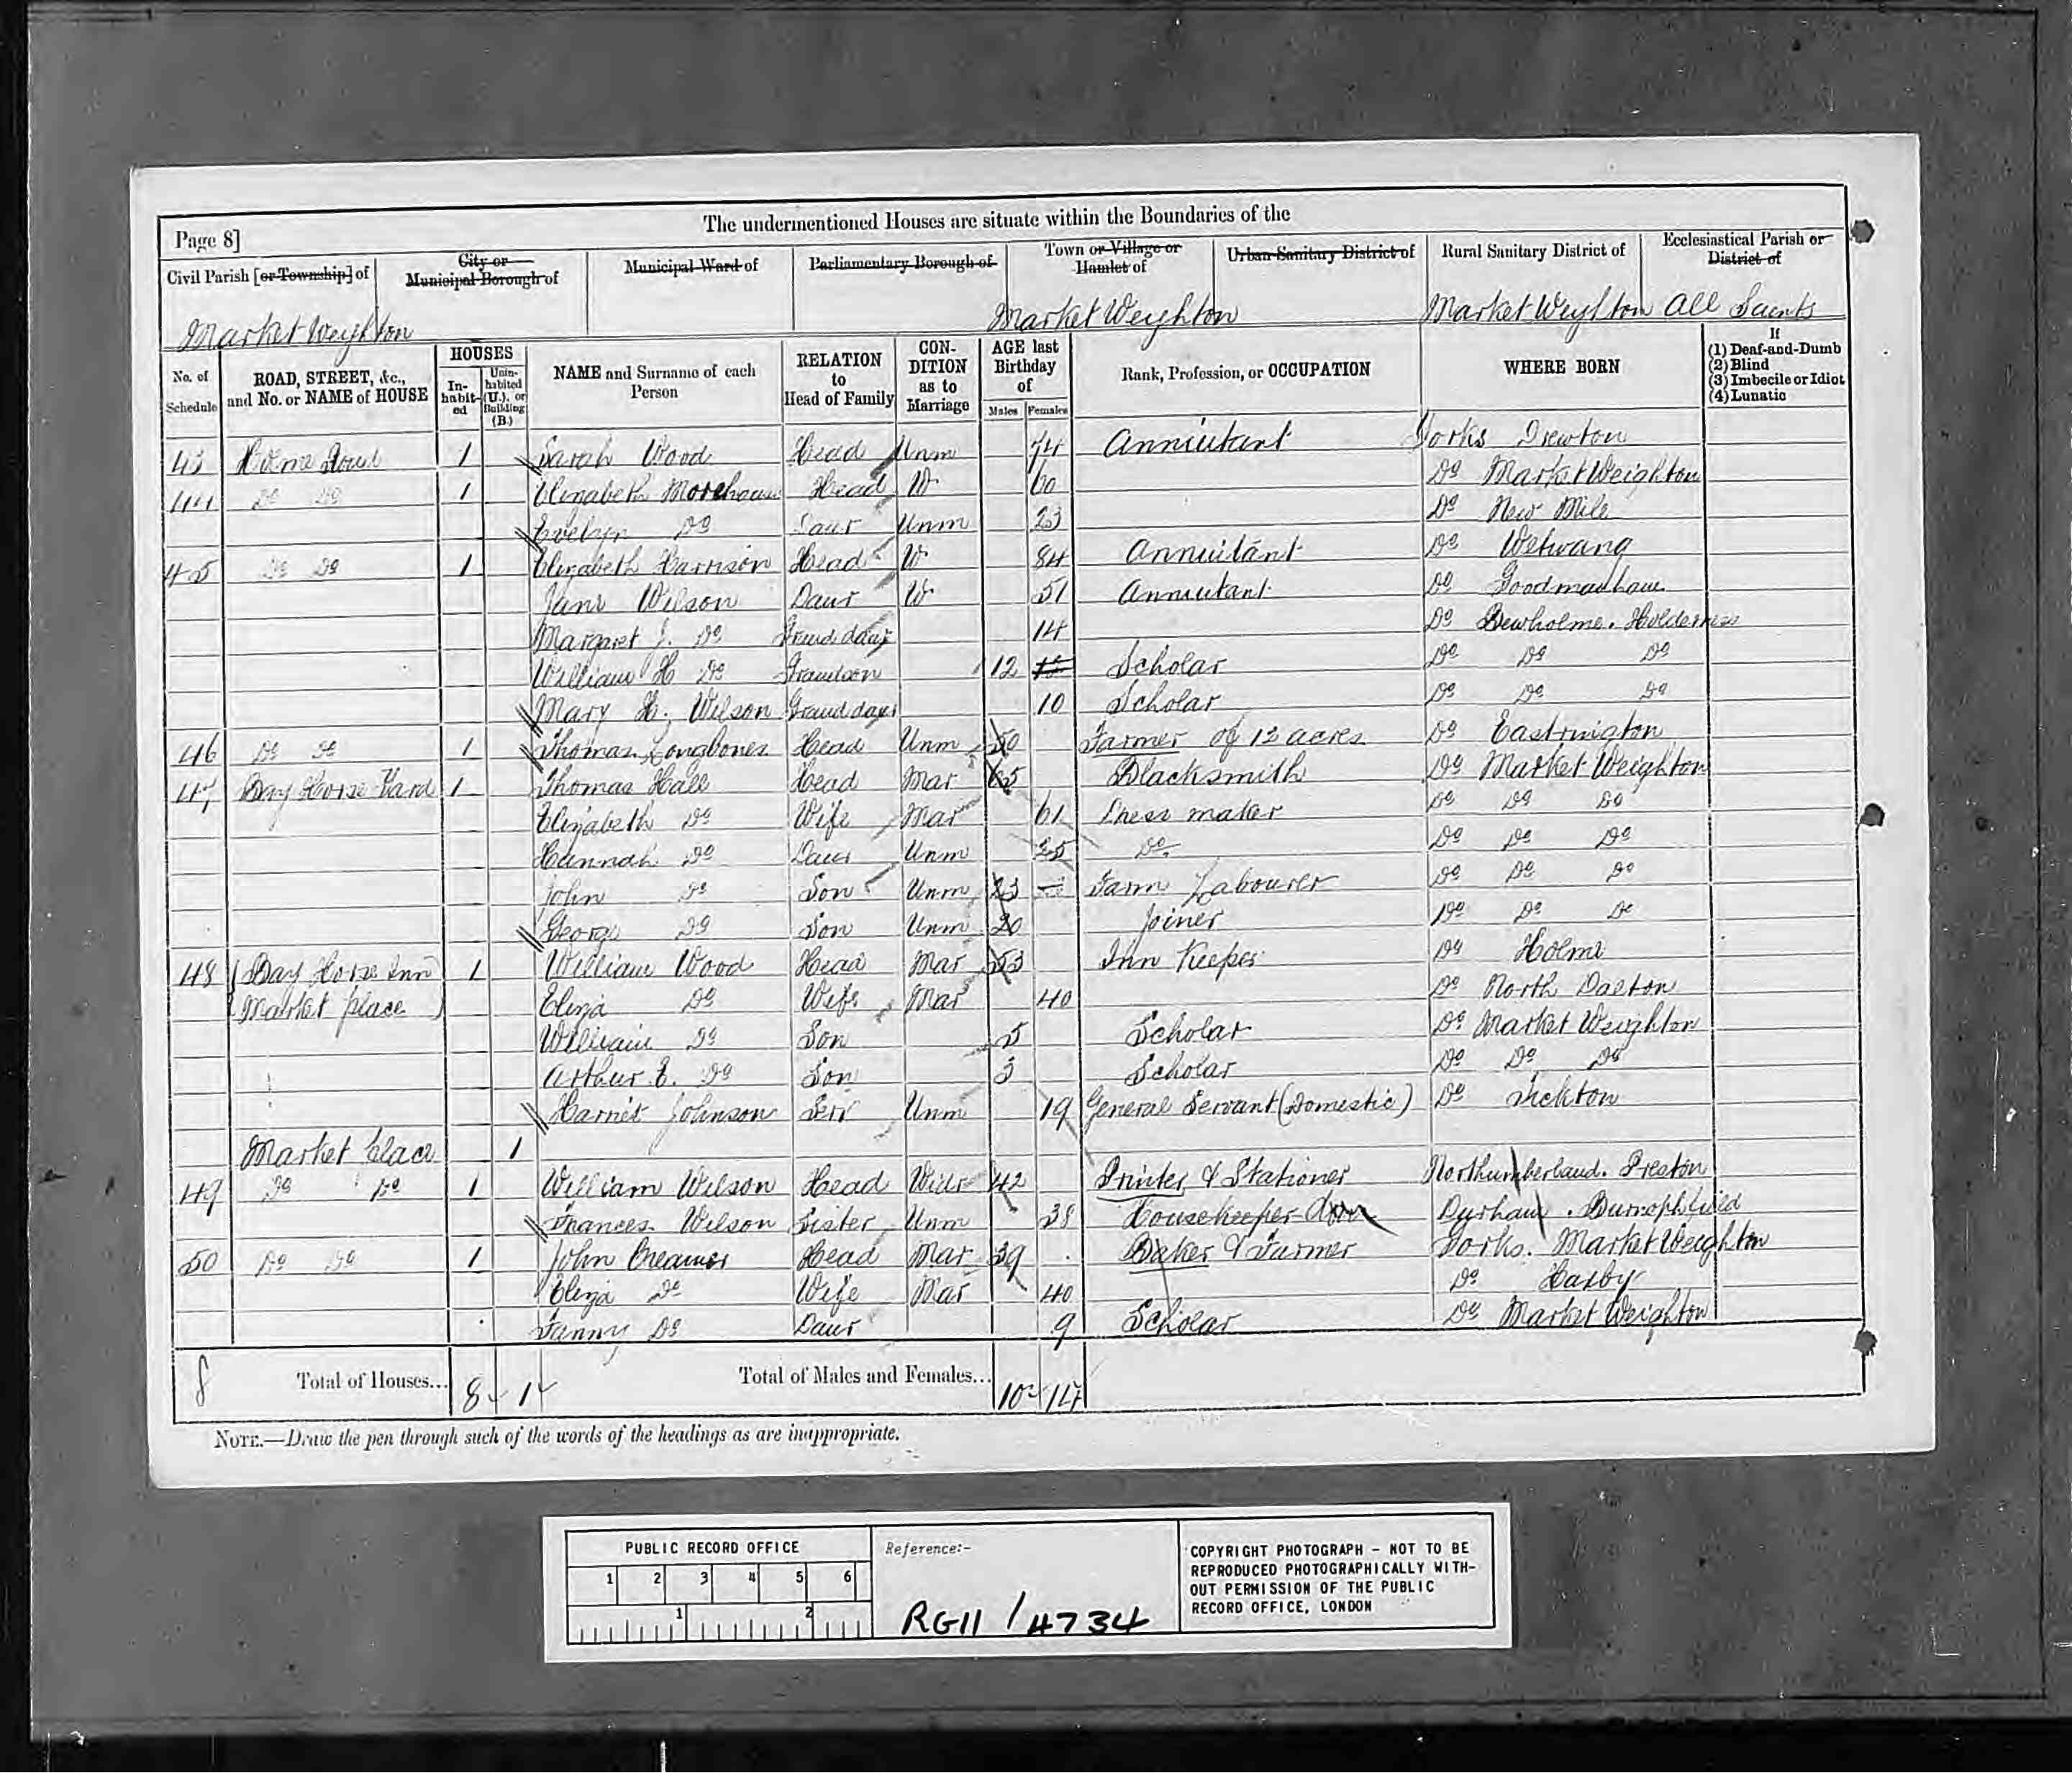 The undermentioned Houses are situate within the Boundaries of the
Page 8]
Civil Parish [or Township] of
City or Municipal Borough of
Municipal Ward of
Parliamentary Borough of
Town or Village or Hamlet of
Urban Sanitary District of
Rural Sanitary District of
Ecclesiastical Parish or District of
Market Weighton Market Weighton Market Weighton All Saints
No. of Schedule
ROAD, STREET, &c., and No. or NAME of HOUSE
HOUSES
In-habit-ed
Unin-habited (U.), or Building (B.)
NAME and Surname of each Person
RELATION to Head of Family
CON-DITION as to Marriage
AGE last Birthday of
Males Females
Rank, Profession, or OCCUPATION
WHERE BORN
If
(1) Deaf-and-Dumb
(2) Blind
(3) Imbecile or Idiot
(4) Lunatic
43 1 Sarah Wood Head Unm 74 Annuitant Yorks Drewton
44 Do Do 1 Elizabeth Morehouse Head W 60 Do Market Weighton
Evelyn Do Daur Unm 23 Do New Mile
45 Do Do 1 Elizabeth Harrison Head W 84 Annuitant Do Wetwang
Jane Wilson Daur W 51 Annuitant Do Goodmanham
Margaret J. Do Grand daur 14 Do Bewholme. Holderness
William H Do Grandson 12 Scholar Do Do Do
Mary H. Wilson Grand daur 10 Scholar Do Do Do
46 Do Do 1 Thomas Longbones Head Unm 50 Farmer of 12 acres Do Eastrington
47 Bay Horse Yard 1 Thomas Hall Head Mar 65 Blacksmith Do Market Weighton
Elizabeth Do Wife Mar 61 maker Do Do Do
Hannah Do Daur Unm 25 Do Do Do Do
John Do Son Unm 23 Farm Labourer Do Do Do
George Do Son Unm 20 Joiner Do Do Do
48 Bay Horse Inn 1 William Wood Head Mar 53 Inn Keeper Do Holme
Market place Eliza Do Wife Mar 40 Do North Dalton
William Do Son 5 Scholar Do Market Weighton
Arthur E. Do Son 3 Scholar Do Do Do
Harriet Johnson Serv Unm 19 General Servant (Domestic) Do Tickton
Market Place 1
49 Do Do 1 William Wilson Head Widr 42 Printer & Stationer Northumberland. Preston
Frances Wilson Sister Unm 38 Housekeeper Dom Durham. Burnopfield
50 Do Do 1 John Creamer Head Mar 39 Baker & Farmer Yorks. Market Weighton
Eliza Do Wife Mar 40 Do Haxby
Fanny Do Daur 9 Scholar Do Market Weighton
8 Total of Houses... 8 1 Total of Males and Females... 10 14
NOTE.—Draw the pen through such of the words of the headings as are inappropriate.
PUBLIC RECORD OFFICE
1 2 3 4 5 6
1 2
Reference:-
RG11/4734
COPYRIGHT PHOTOGRAPH - NOT TO BE
REPRODUCED PHOTOGRAPHICALLY WITH-
OUT PERMISSION OF THE PUBLIC
RECORD OFFICE, LONDON